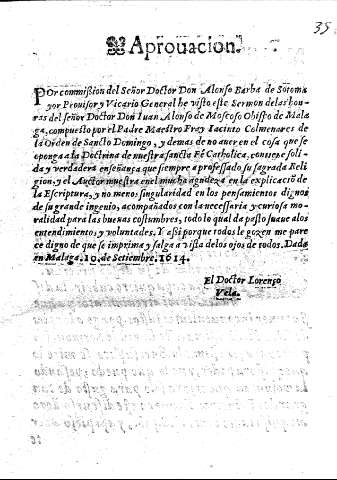 35
Aprouacion.
POr commißion del Señor Doctor Don Alonso Barba de Sotomа
yor Prouisor y Vicario General he visto este Sermon de las hon
ras del señor Doctor Don Iuan Alonso de Moscoso Obispo de Mala
ga, compuesto por el Padre Maestro Fray Iacinto Colmenares de
la Orden de Sancto Domingo, y demas de no auer en el cosa que se
oponga a la Doctrina de nuestra sancta Fé Catholica, contiene soli-
da y verdadera enseñança que siempre a professado su sagrada Reli
gion, y el Auctor muestra en el mucha agudeza en la explicació de
la Escriptura, y no menos singularidad en los pensamientos dignos
de su grande ingenio, acompañados con la necessaria y curiosa mo-
ralidad para las buenas costumbres, todo lo qual da pasto suaue a los
entendimiento, y voluntades. Y aßi porque todos le gozen me pare
ce digno de que se imprima y salga a vista de los ojos de todos. Dada
en Malaga. 10. de Setiembre. 1614.
El Doctor Lorenço
Vela.